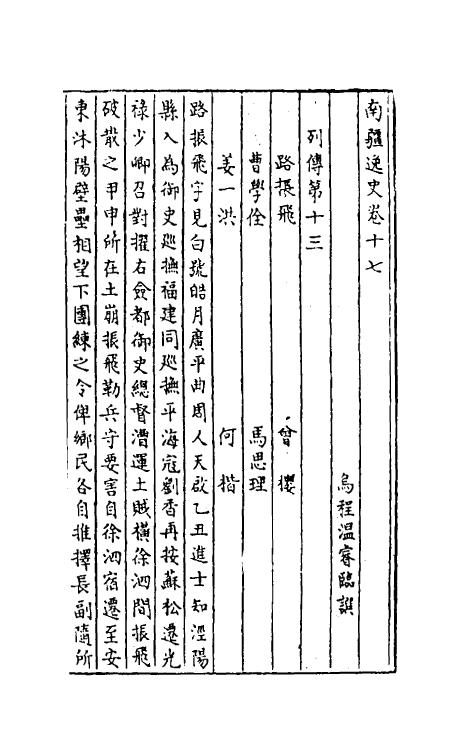 南疆逸史卷十七
烏程溫睿臨譔
列傳第十三
路振飛　曾櫻
曹學佺　馬思理
姜一洪　何楷
路振飛字見白號皓月廣平曲周人天啟乙丑進士知涇陽
縣入為御史巡撫福建同巡撫平海寇劉香再按蘇松遷光
祿少卿召對擢右僉都御史總督漕運土賊橫徐泗間振飛
破散之甲申所在土崩振飛勒兵守要害自徐泗宿遷至安
東沐陽壁壘相望下團練之令俾鄉民各自推擇長副隨所